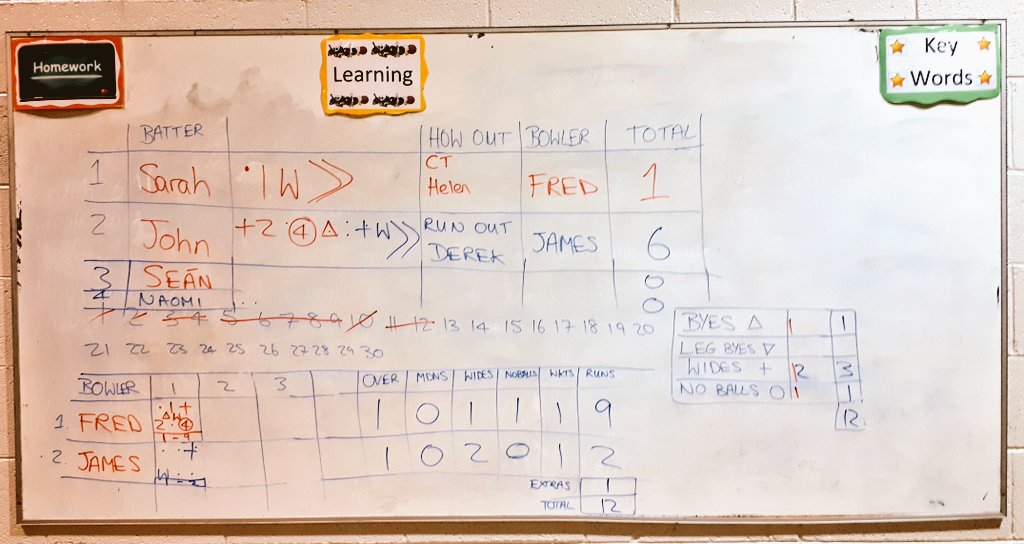 Homework
Learning
Key
Words
BATTER HOW OUT BOWLER TOTAL
1 Sarah • 1 W >> CT Helen FRED 1
2 John +2 • ④ Δ : + W >> RUN OUT DEREK JAMES 6
3 SEÁN 0
4 NAOMI .. 0
1 2 3 4 5 6 7 8 9 10 11 12 13 14 15 16 17 18 19 20
21 22 23 24 25 26 27 28 29 30
BYES Δ 1 1
LEG BYES ▽
WIDES + 12 3
NO BALLS O 1 1
12
BOWLER 1 2 3 OVER MDNS WIDES NOBALLS WKTS RUNS
1. FRED • 1 + Δ W • 2 • ④ 1 - 9 1 0 1 1 1 9
2. JAMES • • + W 1 0 2 0 1 2
EXTRAS 1
TOTAL 12